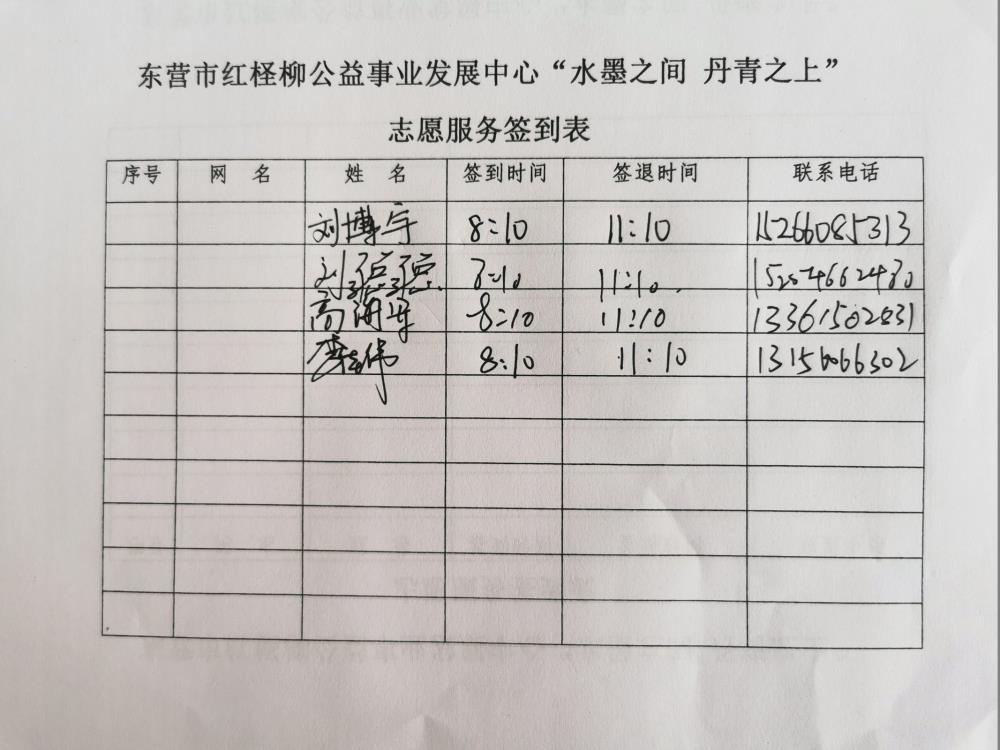 东营市红柽柳公益事业发展中心“水墨之间 丹青之上”
志愿服务签到表
序号 网 名 姓 名 签到时间 签退时间 联系电话
刘博宇 8:10 11:10 15266085313
刘 8:10 11:10.
高 8:10 11:10 13361502831
李 伟 8:10 11:10